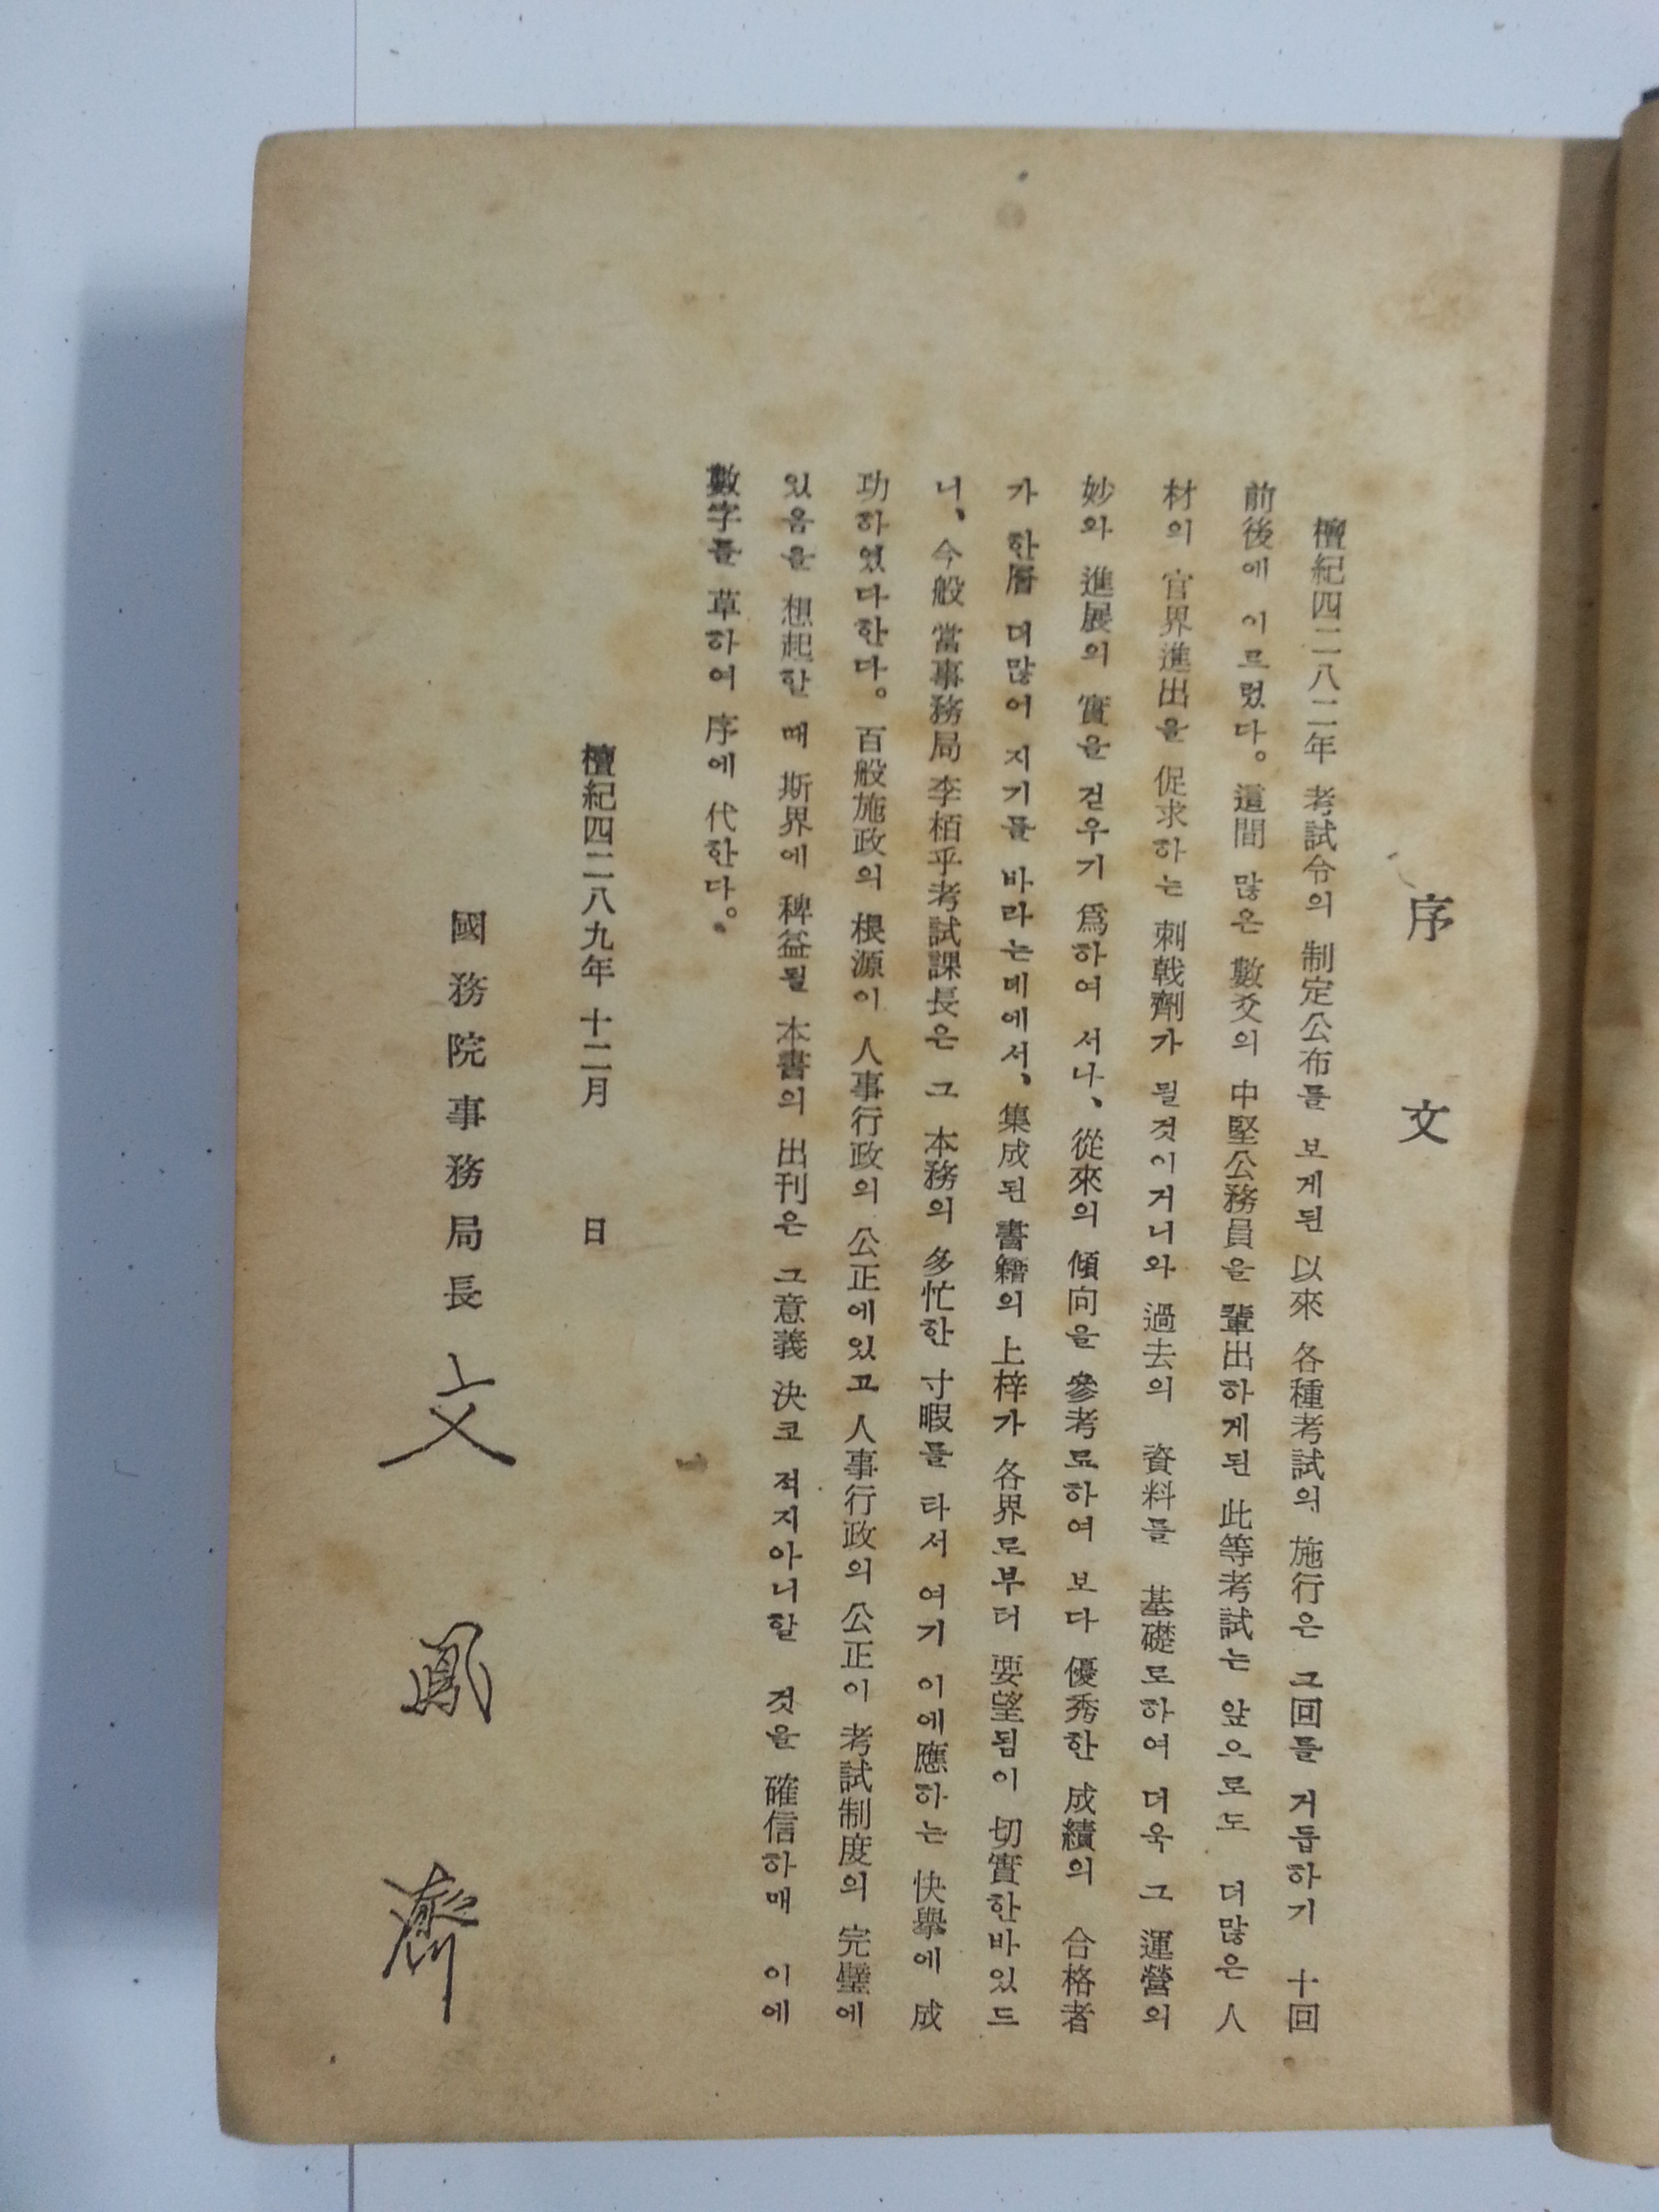 序 文
檀紀四二八二年 考試令의 制定公布를 보게된 以來 各種考試의 施行은 그回를 거듭하기 十回
前後에 이르렀다。這間 많은 數爻의 中堅公務員을 輩出하게된 此等考試는 앞으로도 더많은 人
材의 官界進出을 促求하는 刺戟劑가 될것이거니와 過去의 資料를 基礎로하여 더욱 그 運營의
妙와 進展의 實을 걷우기 爲하여 서나、從來의 傾向을 參考료하여 보다 優秀한 成績의 合格者
가 한層 더많어 지기를 바라는데에서、集成된 書籍의 上梓가 各界로부터 要望됨이 切實한바있드
니、今般 當事務局 李栢乎考試課長은 그 本務의 多忙한 寸暇를 타서 여기 이에應하는 快擧에 成
功하였다한다。百般施政의 根源이 人事行政의 公正에있고 人事行政의 公正이 考試制度의 完璧에
있음을 想起할 때 斯界에 稗益될 本書의 出刊은 그意義 決코 적지아니할 것을 確信하매 이에
數字를 草하여 序에 代한다。
檀紀四二八九年 十二月 日
國務院事務局長 文 鳳 濟